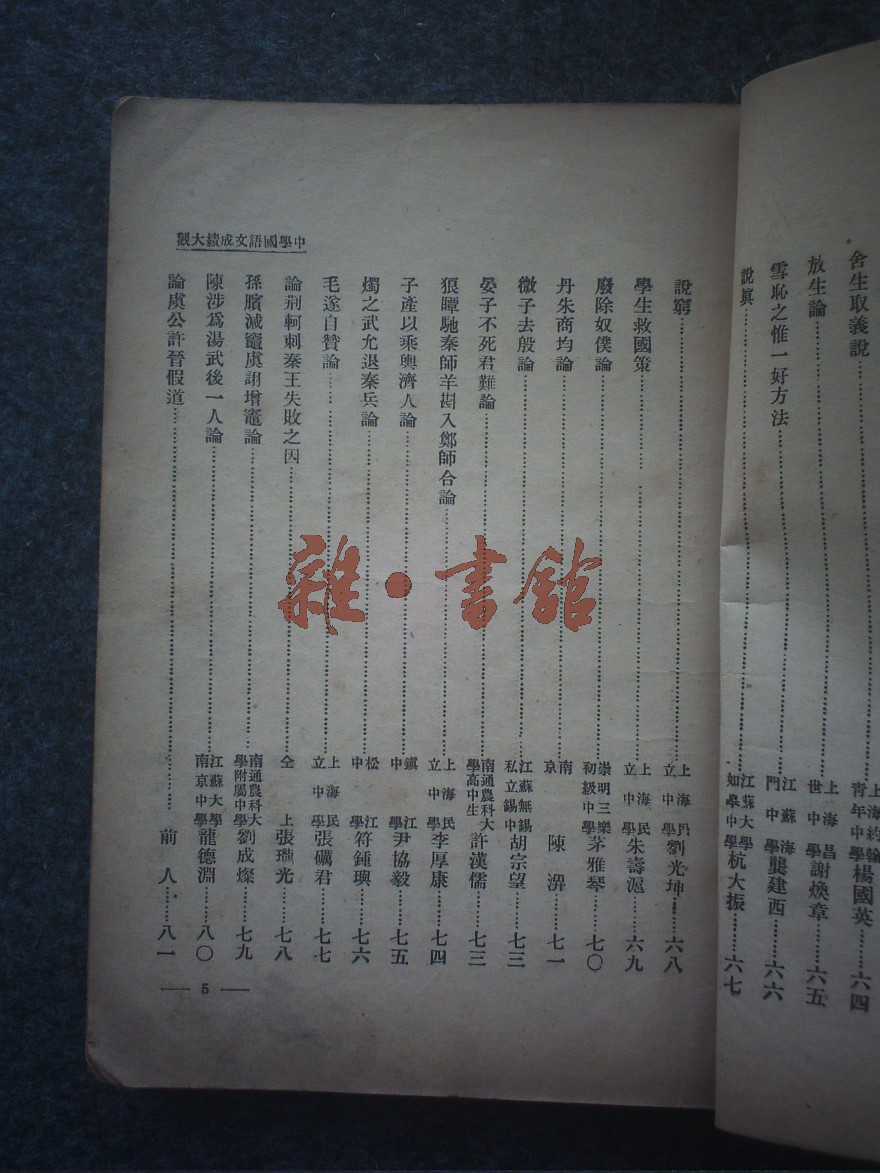 舍生取義說……上海約翰青年中學 楊國英……六四
放生論……上海昌世中學 謝煥章……六五
雪恥之惟一好方法……江蘇海門中學 龔建西……六六
說眞……江蘇大學如皋中學 杭大振……六七
中學國語文成績大觀
說窮……上海民立中學 劉光坤……六八
學生救國策……上海民立中學 朱壽滬……六九
廢除奴僕論……崇明三樂初級中學 茅雅琴……七〇
丹朱商均論……南京 陳……七一
微子去殷論……江蘇無錫私立錫中 胡宗望……七三
晏子不死君難論……南通農科大學高中生 許漢儒……七三
狼瞫馳秦師羊斟入鄭師合論……上海民立中學 李厚康……七四
子產以乘輿濟人論……鎮江中學 尹協毅……七五
燭之武允退秦兵論……松江中學 符鍾璵……七六
毛遂自贊論……上海民立中學 張礪君……七七
論荆軻刺秦王失敗之因……仝上 張瓏光……七八
孫臏減竈虞詡增竈論……南通農科大學附屬中學 劉成燦……七九
陳涉爲湯武後一人論……江蘇大學南京中學 龍德淵……八〇
論虞公許晉假道……前人……八一
— 5 —
雜·書館